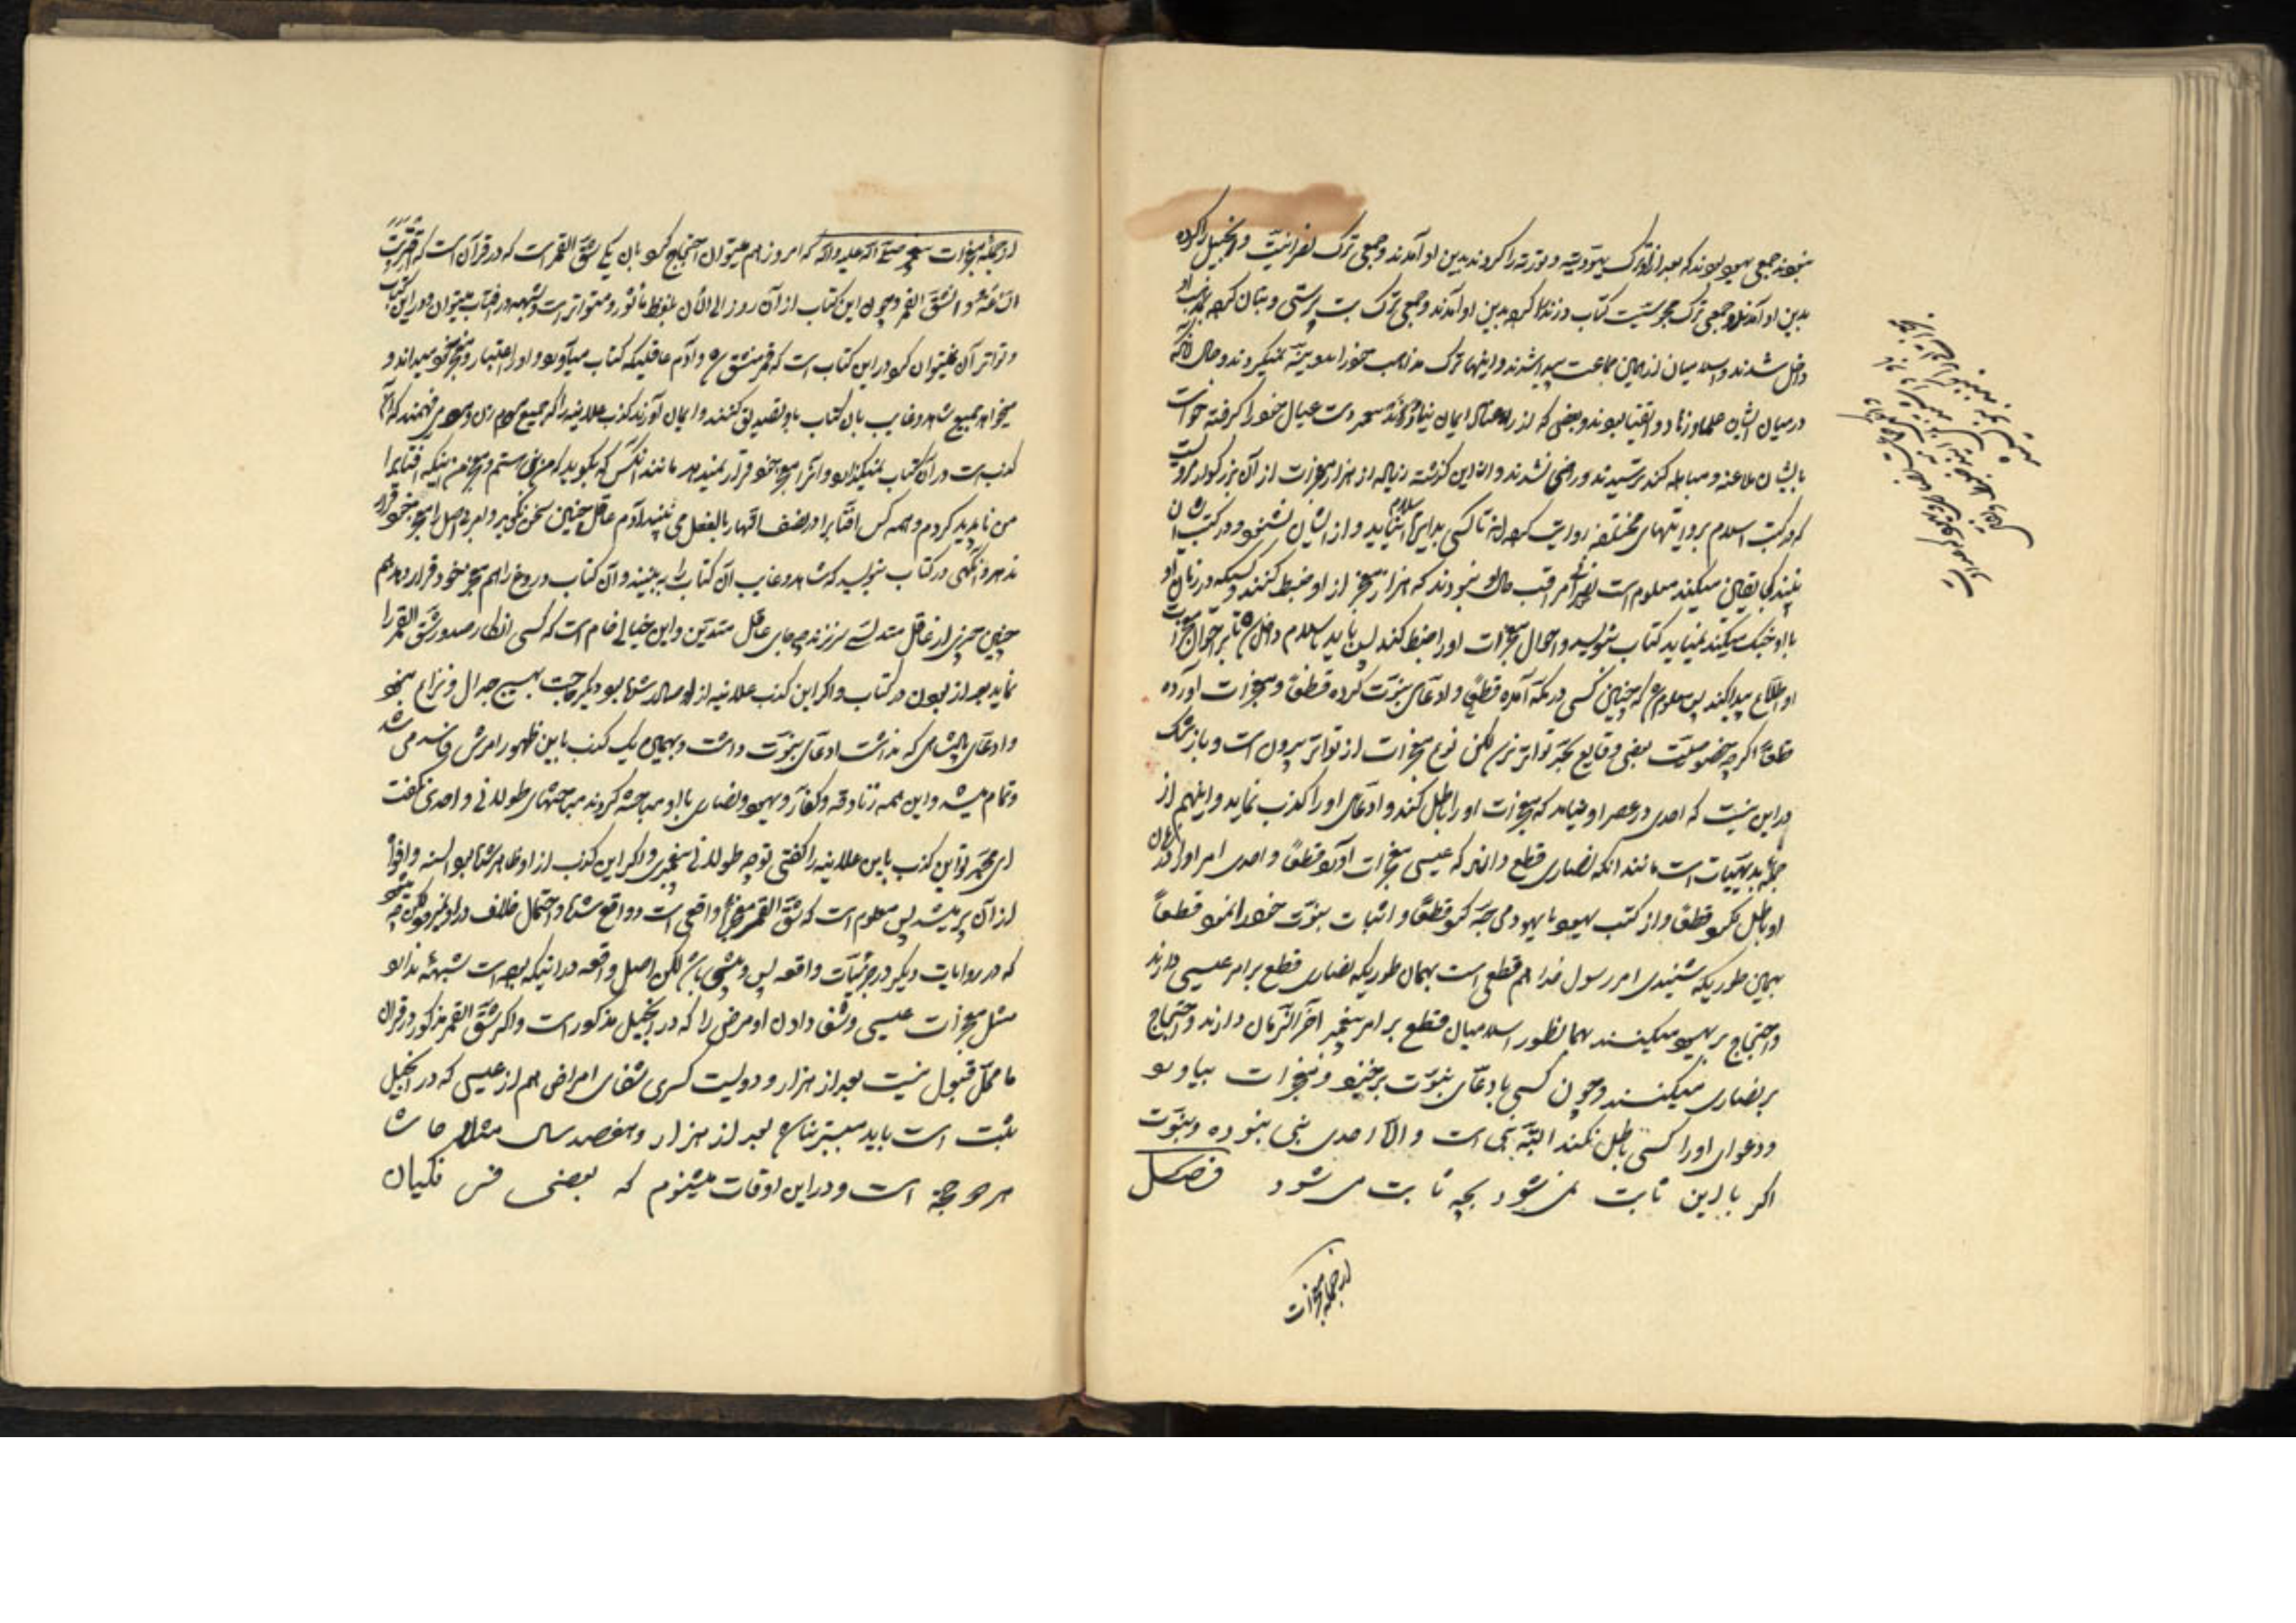 نبودند جمعی یهود بودند که بعد از او ترک یهودیت و توریة را کردند بدین او آمدند و جمعی ترک نصرانیت و انجیل را کرده
بدین او آمدند و جمعی ترک مجوسیت کتاب و زند را کرده بدین او آمدند و جمعی ترک بت پرستی و بتان کرده بمذهب او
داخل شدند و اسلامیان از همین جماعت پیدا شدند و اینها ترک مذاهب خود را بدون بینه نمیکردند و حال آنکه
در میان ایشان علماء و زهاد و اتقیا بودند و بعضی که از راه عناد ایمان نیاوردند دست عیال خود را گرفته خواست
با ایشان ملاعنه و مباهله کند ترسیدند و راضی نشدند و از این گذشته زیاده از هزار معجزات از آن بزرگوار مرویست
که در کتب اسلام بروایتهای مختلفه روایت کرده اند تا کسی بدایره اسلام نیاید و از ایشان نشنود و در کتب ایشان
نبیند کجا یقین میکند معلوم است نصاری مراقب حال او نبودند که هزار معجز از او ضبط کنند و کسیکه در زمان او
با او جنگ میکند نمیاید کتاب بنویسد و احوال معجزات او را ضبط کند پس باید باسلام داخل شد تا بر احوال معجزات
او اطلاع پیدا کند پس معلوم شد که چنین کسی در مکه آمده قطعاً و ادعای نبوت کرده قطعاً و معجزات آورده
قطعاً اگرچه خصوصیت بعضی وقایع بحد تواتر نرسد لکن نوع معجزات از تواتر بیرون است و باز شک
در این نیست که احدی در عصر او نیامد که معجزات او را باطل کند و ادعای او را تکذیب نماید و اینهم از
جمله بدیهیات است مانند آنکه نصاری قطع دارند که عیسی معجزات آورد قطعاً و احدی امر او را در زمان
او باطل نکرد قطعاً و از کتب یهود با یهود محاجه کرد قطعاً و اثبات نبوت خود را نمود قطعاً
بهمین طوریکه شنیدی امر رسول خدا هم قطعی است بهمان طوریکه نصاری قطع بر امر عیسی دارند
و احتجاج بر یهود میکنند همانطور اسلامیان قطع بر امر پیغمبر آخر الزمان دارند و احتجاج
بر نصاری میکنند و چون کسی بادعای نبوت برخیزد و معجزات بیاورد
و دعوای او را کسی باطل نکند البته نبی است و الا احدی نبی نبوده و نبوت
اگر با این ثابت نمی شود بچه ثابت می شود فصل
از جمله معجزات
از جمله معجزات پیغمبر صلی الله علیه و آله که امروز هم میتوان احتجاج کرد بآن یکی شق القمر است که در قرآن است که اقتربت
الساعة و انشق القمر و چون این کتاب از آن روز الی الآن ملفوظ مأثور و متواتر است و شبهه در آفتاب میتوان و در این کتاب
و تواتر آن نمیتوان کرد در این کتاب است که قمر منشق شد و آدم عاقلیکه کتاب میآورد و او را اعتبار و معجز خود میداند و
میخواهد جمیع شاهد و غایب بآن کتاب باو تصدیق کنند و ایمان آورند کذب علانیه را که جمیع مردم زن و مرد می فهمند که این
کذب است در آن کتاب نمیگذارد و آنرا معجز خود قرار نمیدهد مانند آنکس که بگوید که من نبی هستم و معجز من اینکه آفتاب را
من ناپدید کردم و همه کس آفتاب را در نصف النهار بالفعل می بینند آدم عاقل چنین سخن نگوید و امر بی اصل را معجز خود قرار
ندهد و آنگهی در کتاب بنویسد که شاهد و غایب آن کتاب را به بینند و آن کتاب دروغ را هم معجز خود قرار دهد هم
چنین چیزی از عاقل متدلسی سر نزند چه جای عاقل متدین و این خیالی خام است که کسی انکار صدور شق القمر را
نماید بعد از بودن در کتاب و اگر این کذب علانیه از او صادر شده بود دیگر حاجت بهیچ جدال و نزاع نبود
و ادعای پادشاهی که نداشت ادعای نبوت داشت و بهمین یک کذب باین ظهور امرش فاسد می شد
و تمام میشد و این همه زنادقه و کفار و یهود و نصاری با او مباحثه کردند مباحثهای طولانی و احدی نگفت
ای محمد تو این کذب باین علانیه را گفتی تو چه طولانی پیغمبری و اگر این کذب از او ظاهر شده بود السنه و افواه
از آن پر میشد پس معلوم است که شق القمر معجز واقعی است و واقع شده و احتمال خلاف در او نمیرود لکن میشود
که در روایات دیگر در جزئیات واقعه پس و پیشی باشد لکن اصل واقعه در اینکه بوده است شبهه ندارد
مثل معجزات عیسی و شفا دادن او مرض را که در انجیل مذکور است و اگر شق القمر مذکور در قرآن
ما محل قبول نیست بعد از هزار و دویست کسری شفای امراض هم از عیسی که در انجیل
ثبت است باید معتبر نباشد بعد از هزار و هفصد سال مثلا حاشا
هر دو حجة است و در این اوقات میشنوم که بعضی فرنگیان